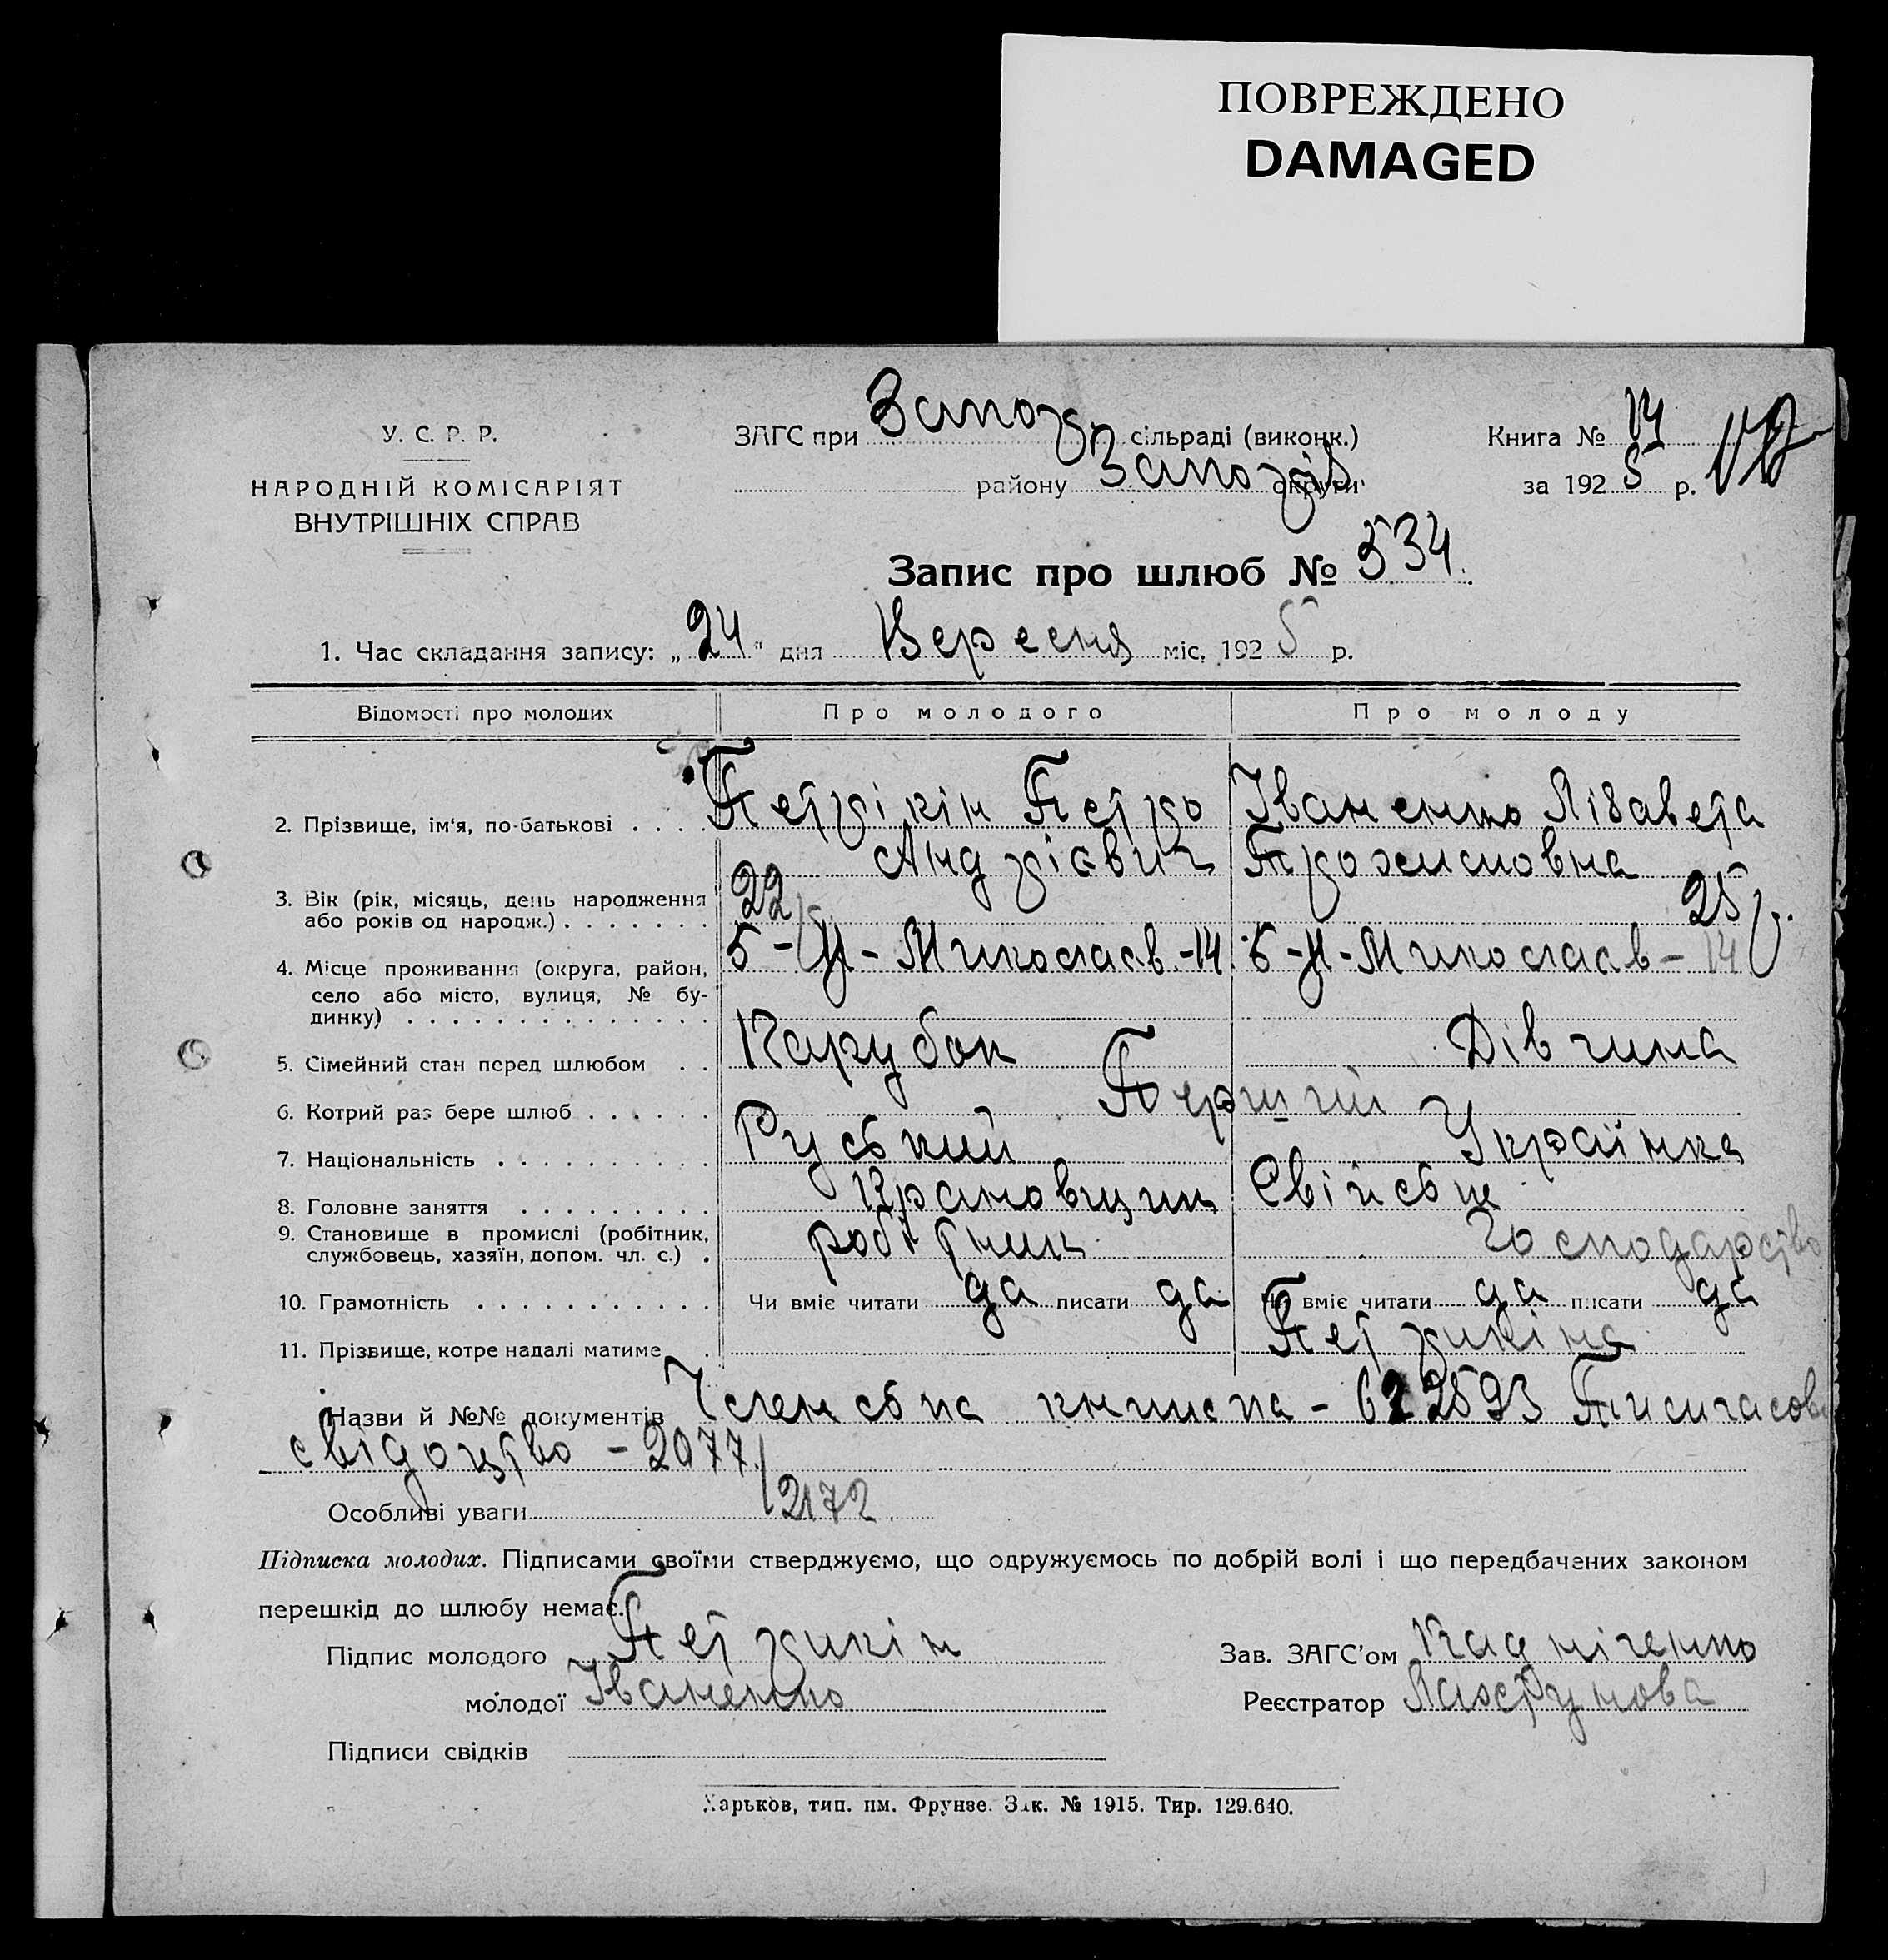 ПОВРЕЖДЕНО
DAMAGED
У. С. Р. Р.
НАРОДНІЙ КОМІСАРІЯТ
ВНУТРІШНІХ СПРАВ
ЗАГС при Запоз. сільраді (виконк.)
району Запозів округи
Книга №
за 1925 р.
Запис про шлюб № 534.
1. Час складання запису: „24" дня Вересня міс. 1925 р.
Відомості про молодих Про молодого Про молоду
2. Прізвище, ім'я, по-батькові . . . . Петрікін Петро Андрієвич Іваненко Лізавета
3. Вік (рік, місяць, день народження
або років од народж.) . . . . . . . 22 25 р.
4. Місце проживання (округа, район, 5-Н-Миколаєв.-14. 5-Н-Миколаєв-14
село або місто, вулиця, № бу-
динку) . . . . . . . . . . . . . .
5. Сімейний стан перед шлюбом . . Парубок Дівчина
6. Котрий раз бере шлюб . . . . . . Перший
7. Національність . . . . . . . . . . Руський Українка
8. Головне заняття . . . . . . . . . Крановщик Свійське
9. Становище в промислі (робітник, робітник Господарство
службовець, хазяїн, допом. чл. с.) .
10. Грамотність . . . . . . . . . . . Чи вміє читати да писати да Чи вміє читати да писати да
11. Прізвище, котре надалі матиме . Петрикіна
Назви й №№ документів Членська книжка - 622593
свідоцтво - 2077/2172
Особливі уваги
Підписка молодих. Підписами своїми стверджуємо, що одружуємось по добрій волі і що передбачених законом
перешкід до шлюбу немає.
Підпис молодого Петрикін
молодої Іваненко
Підписи свідків
Зав. ЗАГС'ом
Реєстратор
Харьков, тип. им. Фрунзе. Зак. № 1915. Тир. 129.640.